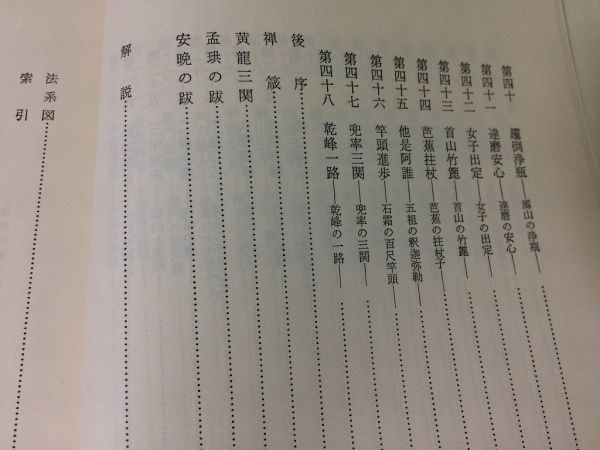 第四十 趯倒浄瓶――潙山の浄瓶――
第四十一 達磨安心――達磨の安心――
第四十二 女子出定――女子の出定――
第四十三 首山竹篦――首山の竹篦――
第四十四 芭蕉拄杖――芭蕉の拄杖子――
第四十五 他是阿誰――五祖の釈迦弥勒――
第四十六 竿頭進歩――石霜の百尺竿頭――
第四十七 兜率三関――兜率の三関――
第四十八 乾峰一路――乾峰の一路――
後序
禅箴
黄龍三関
孟珙の跋
安晩の跋
解説
法系図
索引